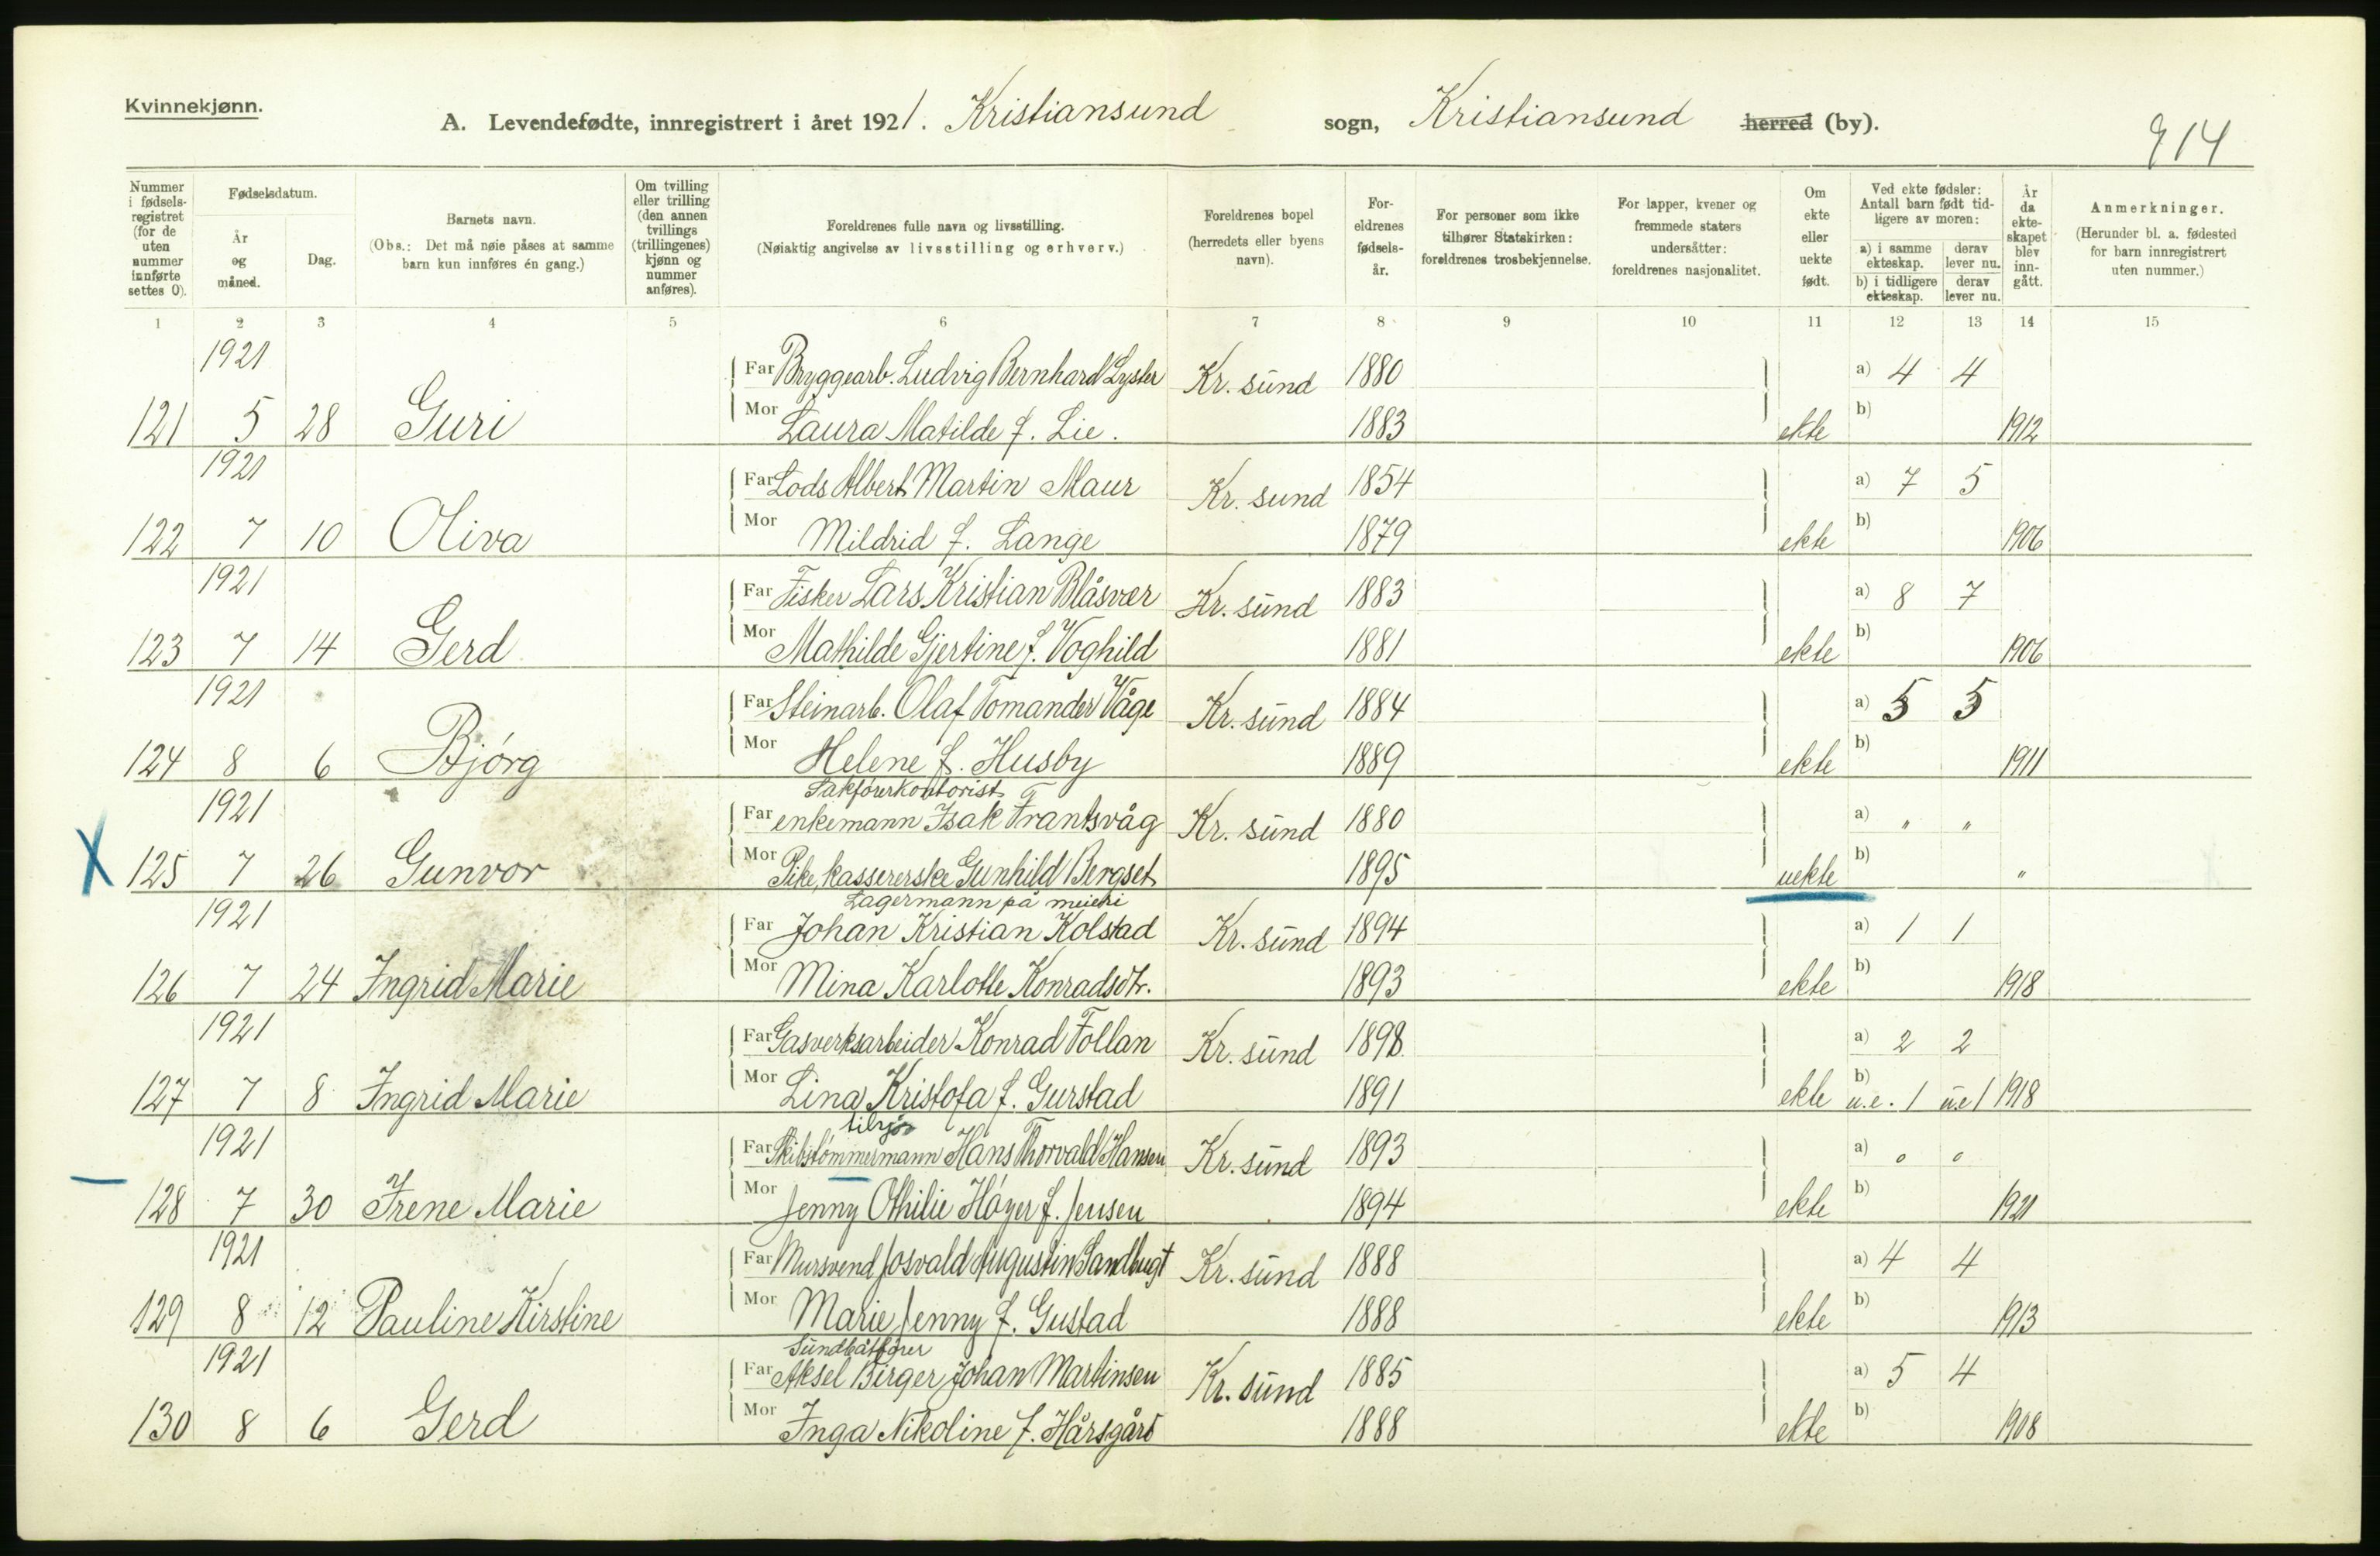 Kvinnekjønn.
A. Levendefødte, innregistrert i året 1921. Kristiansund sogn, Kristiansund herred (by).
914
Nummer i fødsels-registret (for de uten nummer innførte settes 0).
Fødselsdatum.
År og måned.
Dag.
Barnets navn.
(Obs.: Det må nøie påses at samme barn kun innføres én gang.)
Om tvilling eller trilling (den annen tvillings (trillingenes) kjønn og nummer anføres).
Foreldrenes fulle navn og livsstilling.
(Nøiaktig angivelse av livsstilling og erhverv.)
Foreldrenes bopel (herredets eller byens navn).
For-eldrenes fødsels-år.
For personer som ikke tilhører Statskirken: foreldrenes trosbekjennelse.
For lapper, kvener og fremmede staters undersåtter: foreldrenes nasjonalitet.
Om ekte eller uekte født.
Ved ekte fødsler: Antall barn født tid-ligere av moren:
a) i samme ekteskap. derav lever nu.
b) i tidligere ekteskap. derav lever nu.
År da ekte-skapet blev inn-gått.
Anmerkninger.
(Herunder bl. a. fødested for barn innregistrert uten nummer.)
1 2 3 4 5 6 7 8 9 10 11 12 13 14 15
1921 Far Bryggearb. Ludvig Bernhard Lyster Kr. sund 1880 a) 4 4
121 5 28 Guri Mor Laura Matilde f. Lie. 1883 ekte b) 1912
1921 Far Lods Albert Martin Maur Kr. sund 1854 a) 7 5
122 7 10 Oliva Mor Mildrid f. Lange 1879 ekte b) 1906
1921 Far Fisker Lars Kristian Blåsvær Kr. sund 1883 a) 8 7
123 7 14 Gerd Mor Mathilde Gjertine f. Voghild 1881 ekte b) 1906
1921 Far Steinarb. Olaf Tomander Våge Kr. sund 1884 a) 5 5
124 8 6 Bjórg Mor Helene f. Husby 1889 ekte b) 1911
Sakførerkontorist
1921 Far enkemann Isak Frantsvåg Kr. sund 1880 a) " "
X 125 7 26 Gunvor Mor Pike, kassererske Gunhild Bergset 1895 uekte b) "
Lagermann på meieri
1921 Far Johan Kristian Kolstad Kr. sund 1894 a) 1 1
126 7 24 Ingrid Marie Mor Mina Karlotte Konradsdtr. 1893 ekte b) 1918
1921 Far Gasverksarbeider Konrad Follan Kr. sund 1898 a) 2 2
127 7 8 Ingrid Marie Mor Lina Kristofa f. Gurstad 1891 ekte b) u.e. 1 u.e 1 1918
tilsjøs
1921 Far Skibstømmermann Hans Thorvald Hansen Kr. sund 1893 a) o o
128 7 30 Irene Marie Mor Jenny Othilie Høyer f. Jensen 1894 ekte b) 1921
1921 Far Mursvend Josvald Augustin Sandbugt Kr. sund 1888 a) 4 4
129 8 12 Pauline Kirstine Mor Marie Jenny f. Gustad 1888 ekte b) 1913
Sundbåtfører
1921 Far Aksel Birger Johan Martinsen Kr. sund 1885 a) 5 4
130 8 6 Gerd Mor Inga Nikoline f. Hårsgård 1888 ekte b) 1908